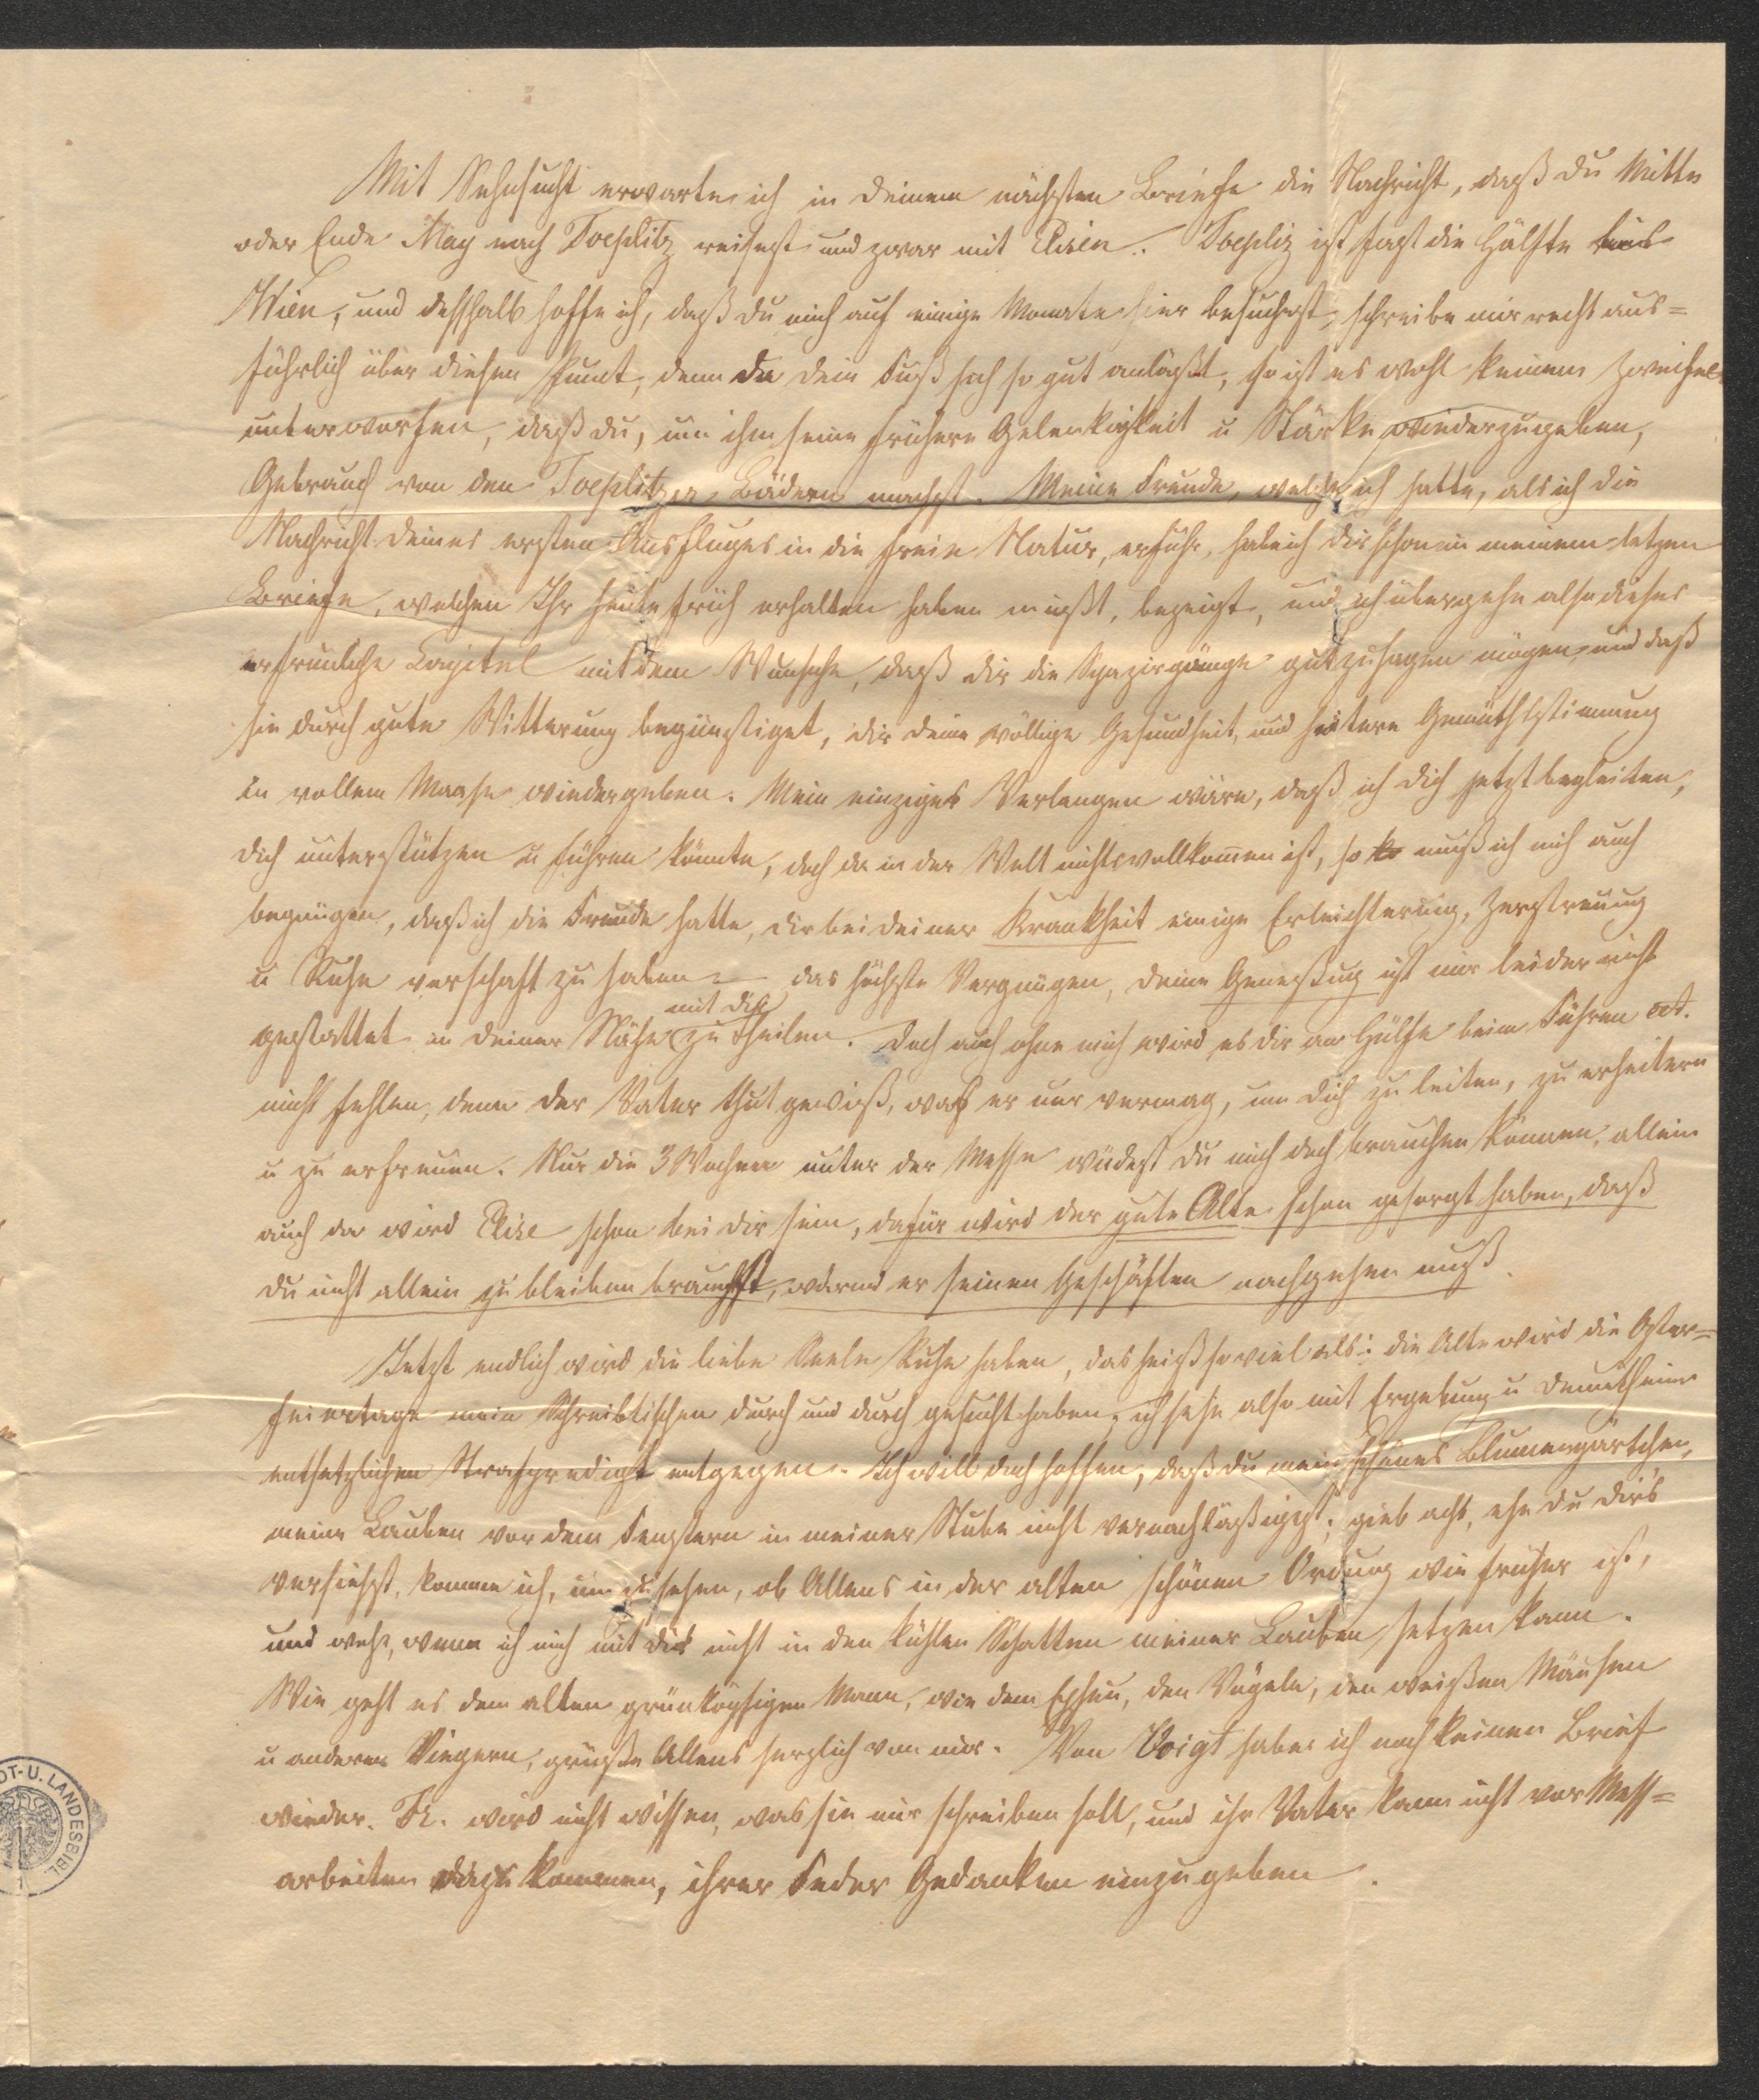 Mit Sehnsucht erwarte ich in Deinem nächsten Briefe die Nachricht, daß Du Mitte
oder Ende May nach Toeplitz reisest und zwar mit Elisen. Toepliz ist fast die Hälfte bis
Wien, und deßhalb hoffe ich, daß Du mich auf einige Monate hier besuchest, schreibe mir recht aus=
führlich über diesen Punct, denn da Dein Fuß sich so gut anläßt, so ist es wohl keinem Zweifel
unterworfen, daß Du, um ihm seine frühere Gelenkigkeit u Stärke wiederzugeben,
Gebrauch von den Toeplitzer Bädern machst. Meine Freude, welche ich hatte, als ich die
Nachricht Deines ersten Ausfluges in die freie Natur, erfuhr, habe ich Dir schon in meinem letzen
Briefe, welchen Ihr heute früh erhalten haben müßt, bezeigt, und ich übergehe also dieses
erfreuliche Capitel mit dem Wunsche, daß Dir die Spazirgänge gut zusagen mögen, und daß
sie durch gute Witterung begünstiget, Dir Deine völlige Gesundheit, und heitere Gemüthsstimmung
in vollem Maase wiedergeben. Mein einziges Verlangen wäre, daß ich Dich jetzt begleiten,
Dich unterstützen u führen könnte, doch da in der Welt nichts vollkomen ist, so muß ich mich auch
begnügen, daß ich die Freude hatte, Dir bei Deiner Krankheit einige Erleichterung, Zerstreuung
u Ruhe verschaft zu haben – das höchste Vergnügen, Deine Geneßung ist mir leider nicht
gestattet in Deiner Nähe mit Dir zu theilen. Doch auch ohne mich wird es Dir an Hülfe beim Führen ect.
nicht fehlen, denn der Vater thut gewiß, was er nur vermag, um Dich zu leiten, zu erheitern
u zu erfreuen. Nur die 3 Wochen unter der Messe würdest Du mich doch brauchen können, allein
auch da wird Elise schon bei Dir sein, dafür wird der gute Alte schon gesorgt haben, daß
Du nicht allein zu bleiben brauchst, wärend er seinen Geschäften nachgehen muß.
Jetzt endlich wird die liebe Seele Ruhe haben, das heißt so viel als: die Alte wird die Oster=
feiertage mein Schreibtischen durch und durch gesucht haben; ich sehe also mit Ergebung u Demuth einer
entsetzlichen Strafpredigt entgegen. Ich will doch hoffen, daß Du mein schönes Blumengärtchen,
meine Lauben vor dem Fenstern in meiner Stube nicht vernachläßigest; gieb acht, ehe Du Dir's
versiehst, komme ich, um zu sehen, ob Allens in der alten schönen Ordnung wie früher ist,
und wehe, wenn ich mich mit Dir nicht in den kühlen Schatten meiner Lauben setzen kann.
Wie geht es dem alten grünköpfigen Mann, wie dem Epheu, den Vögeln, den weißen Mäusen
u anderen Dingern, grüße Allens herzlich von mir. Von Voigt habe ich noch keinen Brief
wieder. Fr. wird nicht wissen, was sie mir schreiben soll, und ihr Vater kann nicht vor Meß=
arbeiten dazu kommen, ihrer Feder Gedanken einzugeben.
DT- U. LANDESBIBL